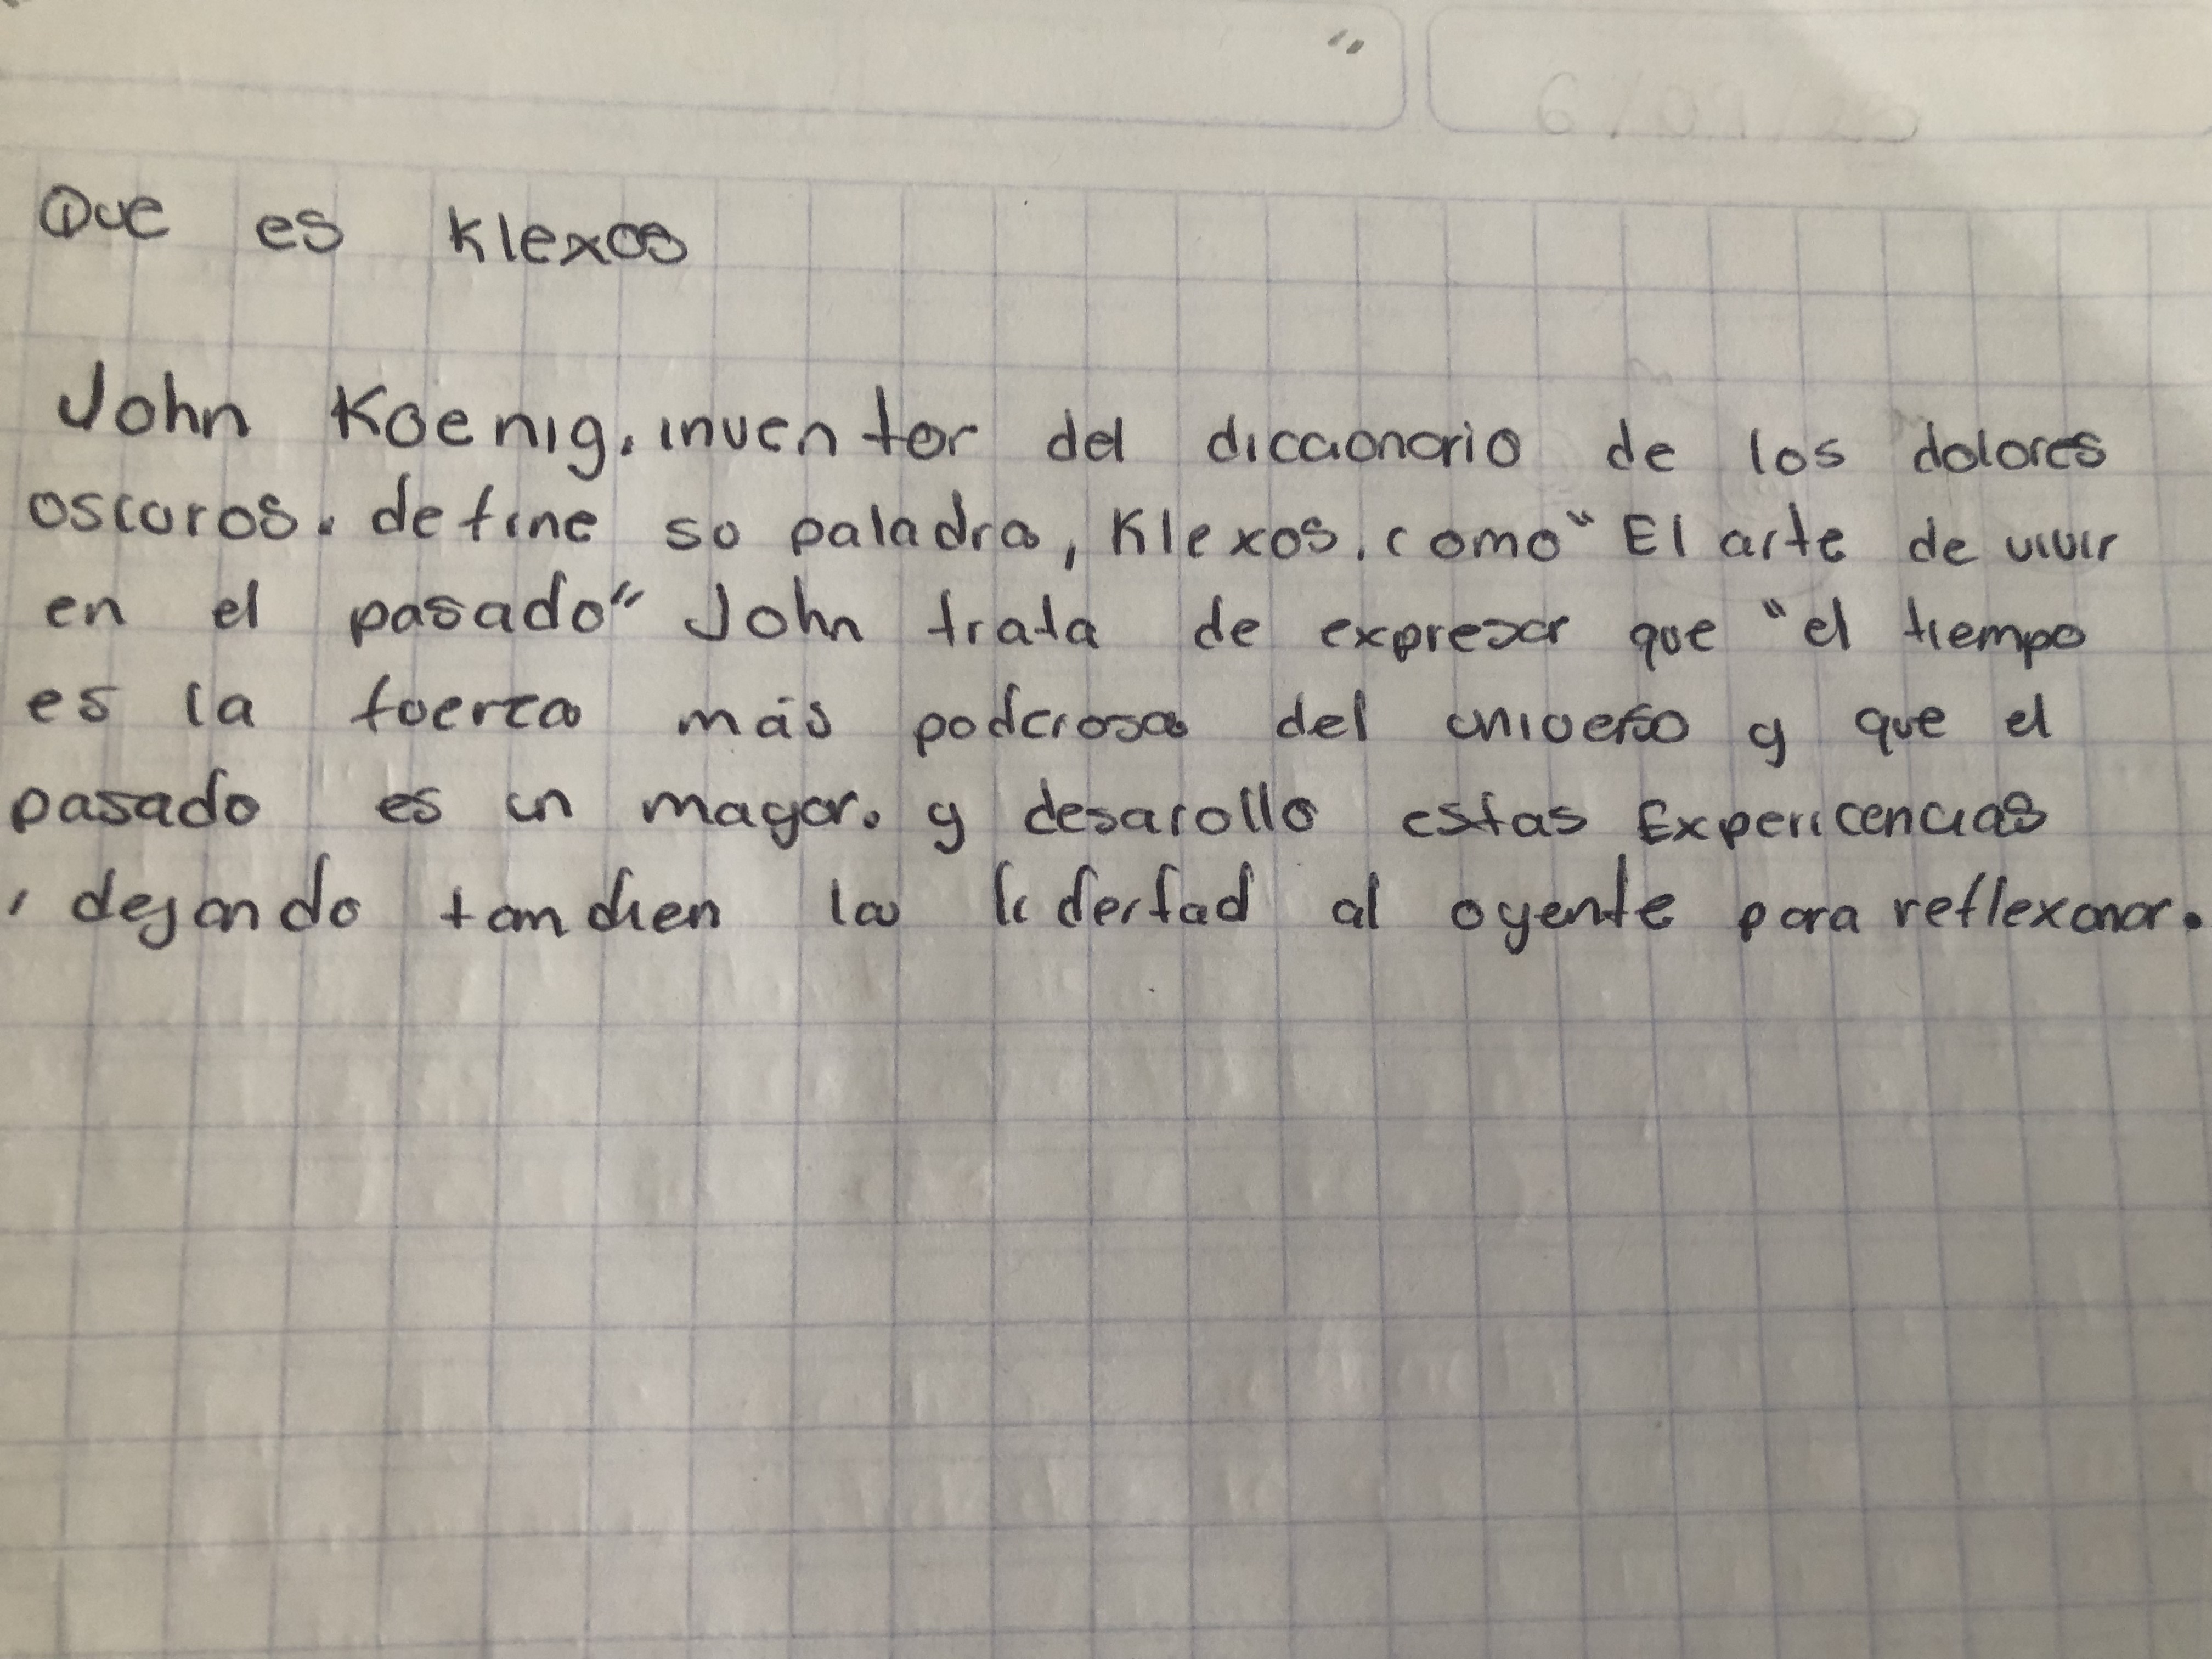 Que es Klexos
John Koenig, inventor del diccionario de los dolores
oscuros. define su paladra, Klexos, como "El arte de vivir
en el pasado" John trata de expresar que "el tiempo
es la fuerza más poderosa del universo y que el
pasado es un mayor. y desarollo estas Expericencias
, dejando tandien la lidertad al oyente para reflexonar.